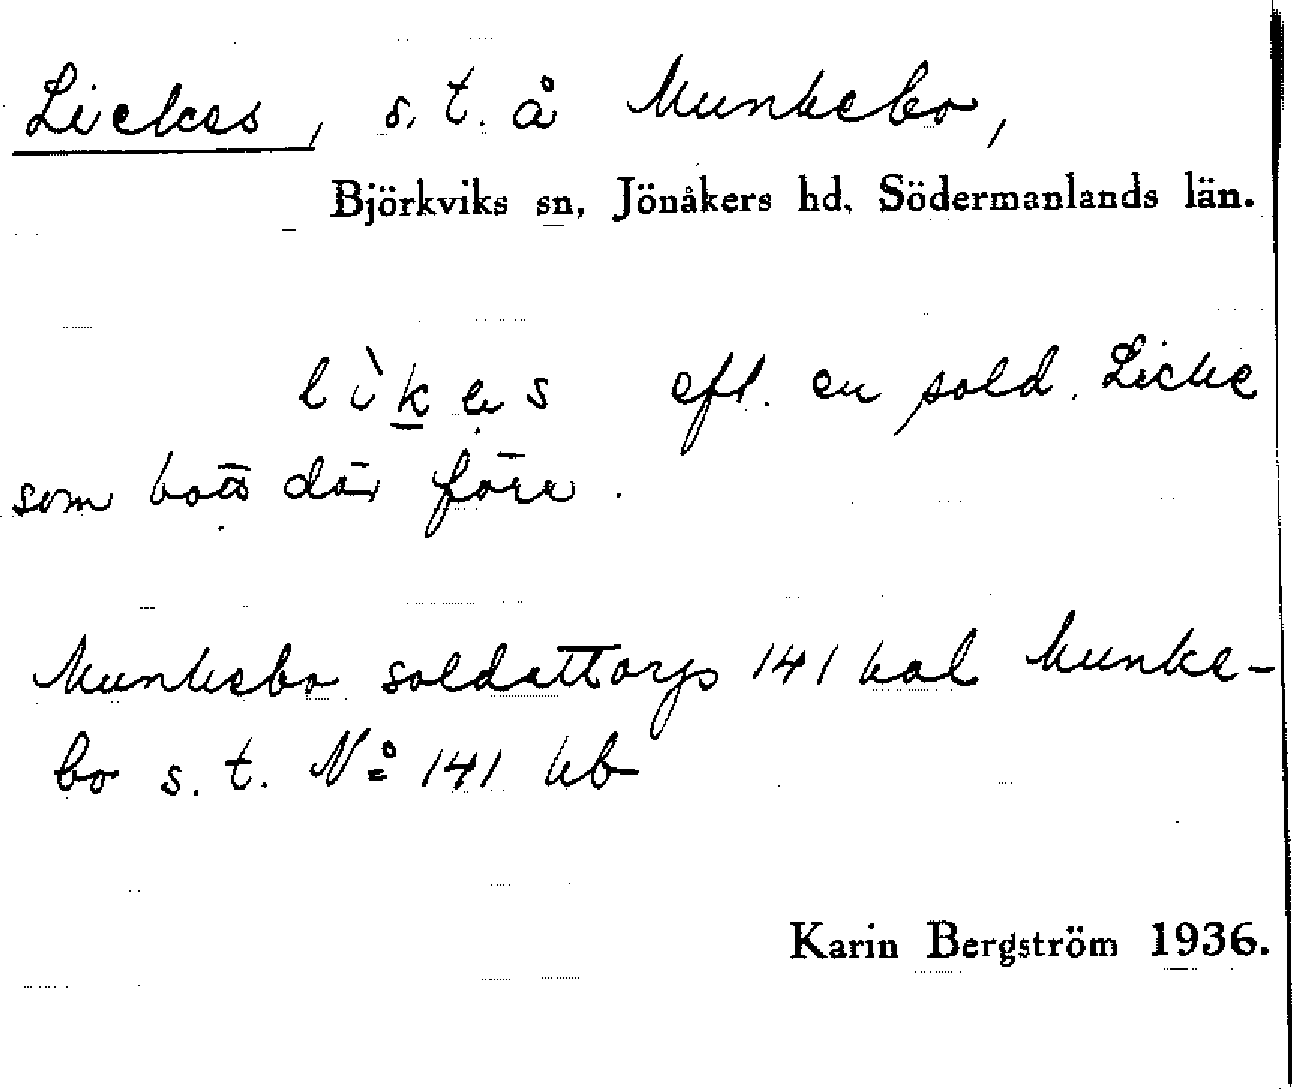 Lickes, s.t. å Munkebo,
Björkviks sn, Jönåkers hd, Södermanlands län.
lìkes eft. en sold. Licke
som bott där förr.
Munkebo soldattorp 141 kal Munke-
bo s.t. Nº 141 kb
Karin Bergström 1936.